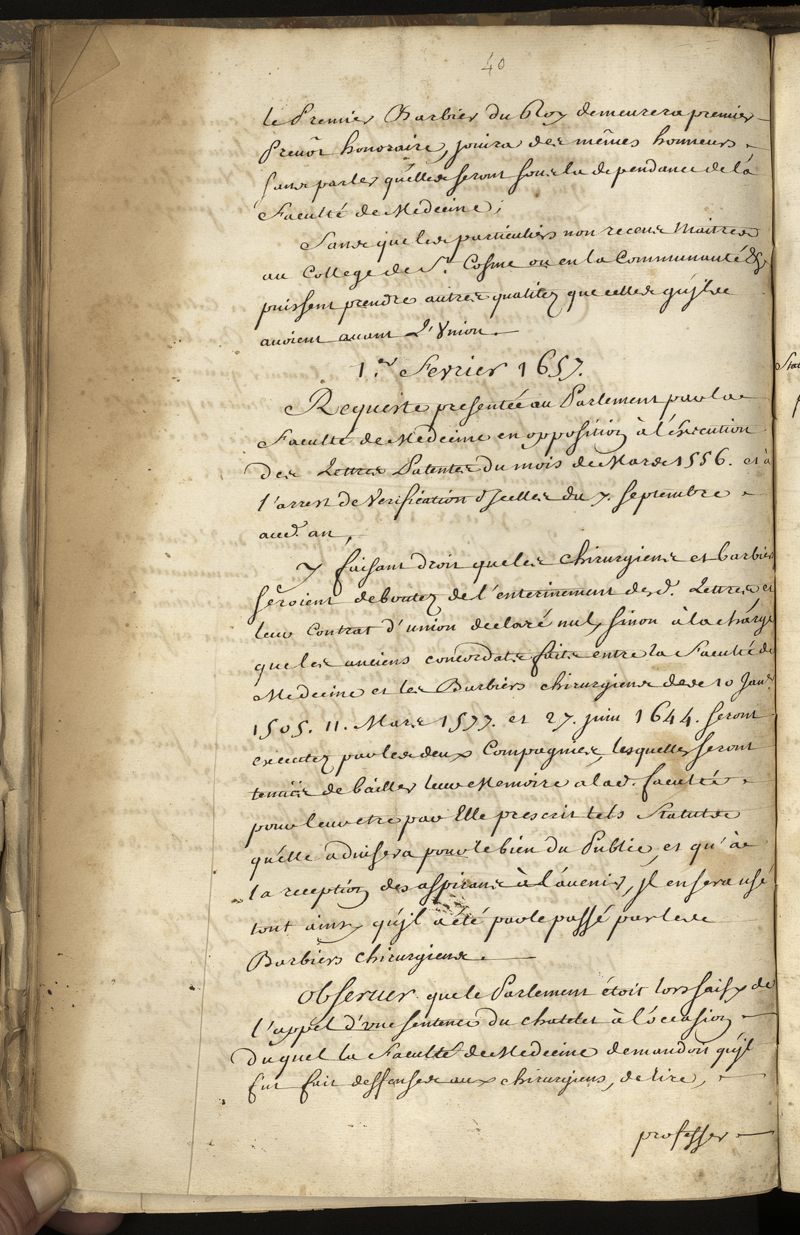 40
le Premier Barbier du Roy demeurera premier
Prevôt honoraire, jouira des mêmes honneurs
sans parler qu'elles seront sous la dependance de la
Faculté de Medecine;
Sans que les particuliers non receus Maitres
au College de St. Cosme ou en la Communauté &c
puissent prendre autres qualitez que celles qu'jls
avoient avant L'Union.
1.er Fevrier 1657.
Requeste presentée au Parlement par la
Faculté de Medecine en opposition à l'éxecution
des Lettres Patentes du mois de Mars 1556. et à
l'arrest de Verification d'Jcelles du 7. Septembre
aud. an,
Y faisant droit que les chirurgiens et barbiers
seroient deboutez de l'enterinement desd. Lettres et
leur Contrat d'union declaré nul, sinon à la charge
que les anciens concordats faits entre la Faculté de
Medecine et les Barbiers chirurgiens des 10 Janr.
1505. 11. Mars 1577. et 27. juin 1644. seront
executez par les deux Compagnies, lesquelles seront
tenües de bailler leur Memoire a lad. faculté
pour leur etre par Elle prescrit tels Statuts
qu'elle advisera pour le bien du Public, et qu'à
la reception des aspirans à l'avenir, jl en sera usé
tout ainsy qu'jl a été par le passé par les
Barbiers chirurgiens.
Observer que le Parlement étoit lors saisy de
l'appel d'une sentence du chatelet à l'occasion
duquel la Faculté de Medecine demandoit qu'jl
fut fait deffenses aux chirurgiens, de lire,
professer